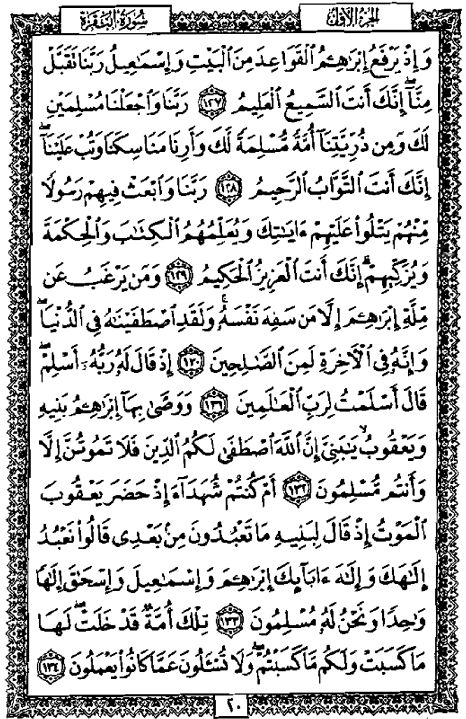 سورة البقرة
الجزء الأول
وَإِذْ يَرْفَعُ إِبْرَٰهِـۧمُ ٱلْقَوَاعِدَ مِنَ ٱلْبَيْتِ وَإِسْمَٰعِيلُ رَبَّنَا تَقَبَّلْ
مِنَّآ إِنَّكَ أَنتَ ٱلسَّمِيعُ ٱلْعَلِيمُ ١٢٧ رَبَّنَا وَٱجْعَلْنَا مُسْلِمَيْنِ
لَكَ وَمِن ذُرِّيَّتِنَآ أُمَّةً مُّسْلِمَةً لَّكَ وَأَرِنَا مَنَاسِكَنَا وَتُبْ عَلَيْنَآ
إِنَّكَ أَنتَ ٱلتَّوَّابُ ٱلرَّحِيمُ ١٢٨ رَبَّنَا وَٱبْعَثْ فِيهِمْ رَسُولًا
مِّنْهُمْ يَتْلُوا۟ عَلَيْهِمْ ءَايَٰتِكَ وَيُعَلِّمُهُمُ ٱلْكِتَٰبَ وَٱلْحِكْمَةَ
وَيُزَكِّيهِمْ إِنَّكَ أَنتَ ٱلْعَزِيزُ ٱلْحَكِيمُ ١٢٩ وَمَن يَرْغَبُ عَن
مِّلَّةِ إِبْرَٰهِـۧمَ إِلَّا مَن سَفِهَ نَفْسَهُۥ وَلَقَدِ ٱصْطَفَيْنَٰهُ فِى ٱلدُّنْيَا
وَإِنَّهُۥ فِى ٱلْءَاخِرَةِ لَمِنَ ٱلصَّٰلِحِينَ ١٣٠ إِذْ قَالَ لَهُۥ رَبُّهُۥٓ أَسْلِمْ
قَالَ أَسْلَمْتُ لِرَبِّ ٱلْعَٰلَمِينَ ١٣١ وَوَصَّىٰ بِهَآ إِبْرَٰهِـۧمُ بَنِيهِ
وَيَعْقُوبُ يَٰبَنِىَّ إِنَّ ٱللَّهَ ٱصْطَفَىٰ لَكُمُ ٱلدِّينَ فَلَا تَمُوتُنَّ إِلَّا
وَأَنتُم مُّسْلِمُونَ ١٣٢ أَمْ كُنتُمْ شُهَدَآءَ إِذْ حَضَرَ يَعْقُوبَ
ٱلْمَوْتُ إِذْ قَالَ لِبَنِيهِ مَا تَعْبُدُونَ مِنۢ بَعْدِى قَالُوا۟ نَعْبُدُ
إِلَٰهَكَ وَإِلَٰهَ ءَابَآئِكَ إِبْرَٰهِـۧمَ وَإِسْمَٰعِيلَ وَإِسْحَٰقَ إِلَٰهًا
وَٰحِدًا وَنَحْنُ لَهُۥ مُسْلِمُونَ ١٣٣ تِلْكَ أُمَّةٌ قَدْ خَلَتْ لَهَا
مَا كَسَبَتْ وَلَكُم مَّا كَسَبْتُمْ وَلَا تُسْـَٔلُونَ عَمَّا كَانُوا۟ يَعْمَلُونَ ١٣٤
٢٠